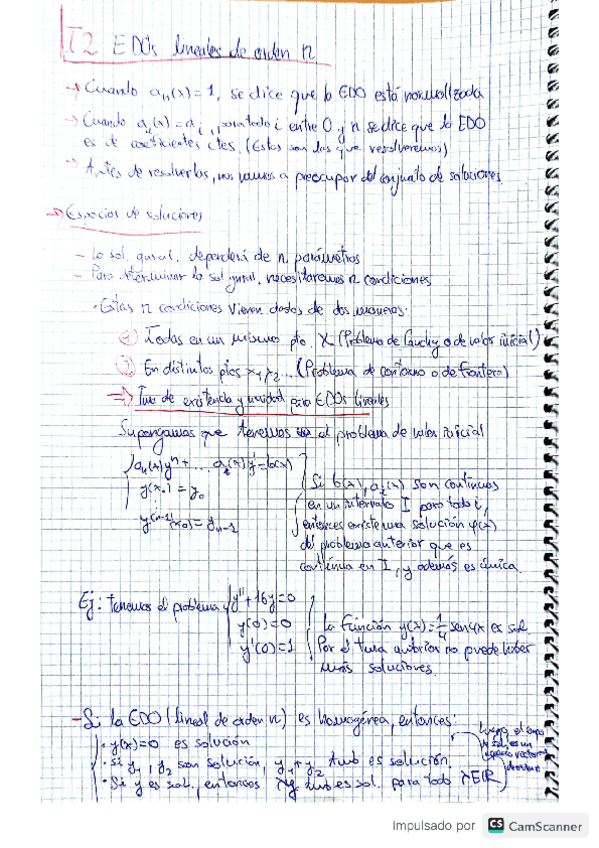 T2 EDOs lineales de orden n
→ Cuando aₙ(x)=1, se dice que la EDO está normalizada
→ Cuando aᵢ(x)=aᵢ, para todo i entre 0 y n se dice que la EDO
es de coeficientes ctes. (Estas son las que resolveremos)
→ Antes de resolverlas, nos vamos a preocupar del conjunto de soluciones.
→ Espacios de soluciones
- La sol. gnral. dependerá de n parámetros
- Para determinar la sol gnral. necesitaremos n condiciones
· Estas n condiciones vienen dadas de dos maneras:
1) Todas en un mismo pto. X (Problema de Cauchy o de valor inicial)
2) En distintos ptos x₁, x₂ ... (Problema de contorno o de frontera)
→ Tma de existencia y unicidad para EDOs lineales
Supongamos que tenemos el problema de valor inicial
y(x₀) = y₀
y⁽ⁿ⁻¹⁾(x₀) = yₙ₋₁
Si b(x), aᵢ(x) son continuas
en un intervalo I para todo i,
entonces existe una solución φ(x)
del problema anterior que es
continua en I, y además es única.
Ej: tenemos el problema y''+16y=0
y(0)=0
y'(0)=1
La función y(x)=1/4 sen4x es sol.
Por el tma anterior no puede haber
más soluciones.
- Si la EDO (lineal de orden n) es homogénea, entonces:
· y(x)=0 es solución
· Si y₁, y₂ son solución, y₁+y₂ tmb es solución.
· Si y es sol., entonces λy tmb es sol. para todo λ∈ℝ
Luego, el
espacio vectorial
Impulsado por CS CamScanner